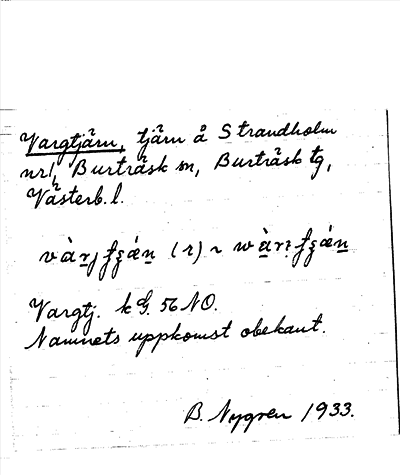 Vargtjärn, tjärn å Strandholm
nr1, Burträsk sn, Burträsk tg,
Västerb. l.
Vargtj. k G. 56 NO.
Namnets uppkomst obekant.
B. Nygren 1933.